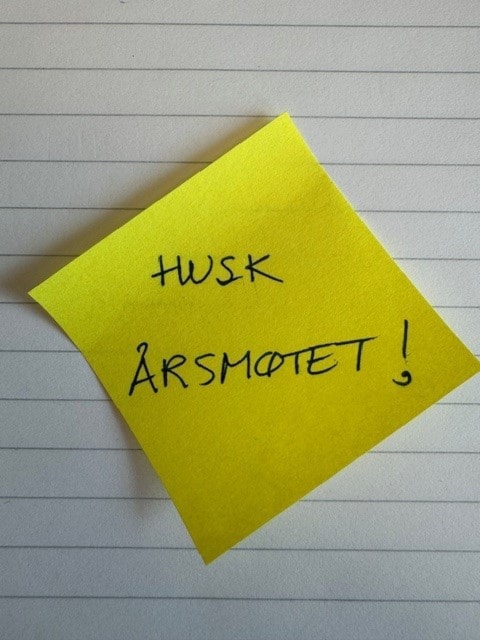 HUSK
ÅRSMØTET!